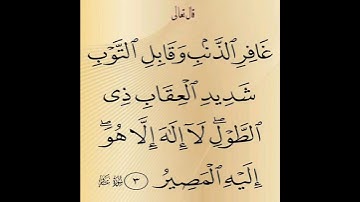 قال تعالى
غَافِرِ ٱلذَّنۢبِ وَقَابِلِ ٱلتَّوۡبِ
شَدِيدِ ٱلۡعِقَابِ ذِى
ٱلطَّوۡلِۖ لَآ إِلَٰهَ إِلَّا هُوَۖ
إِلَيۡهِ ٱلۡمَصِيرُ ٣ سورة غافر